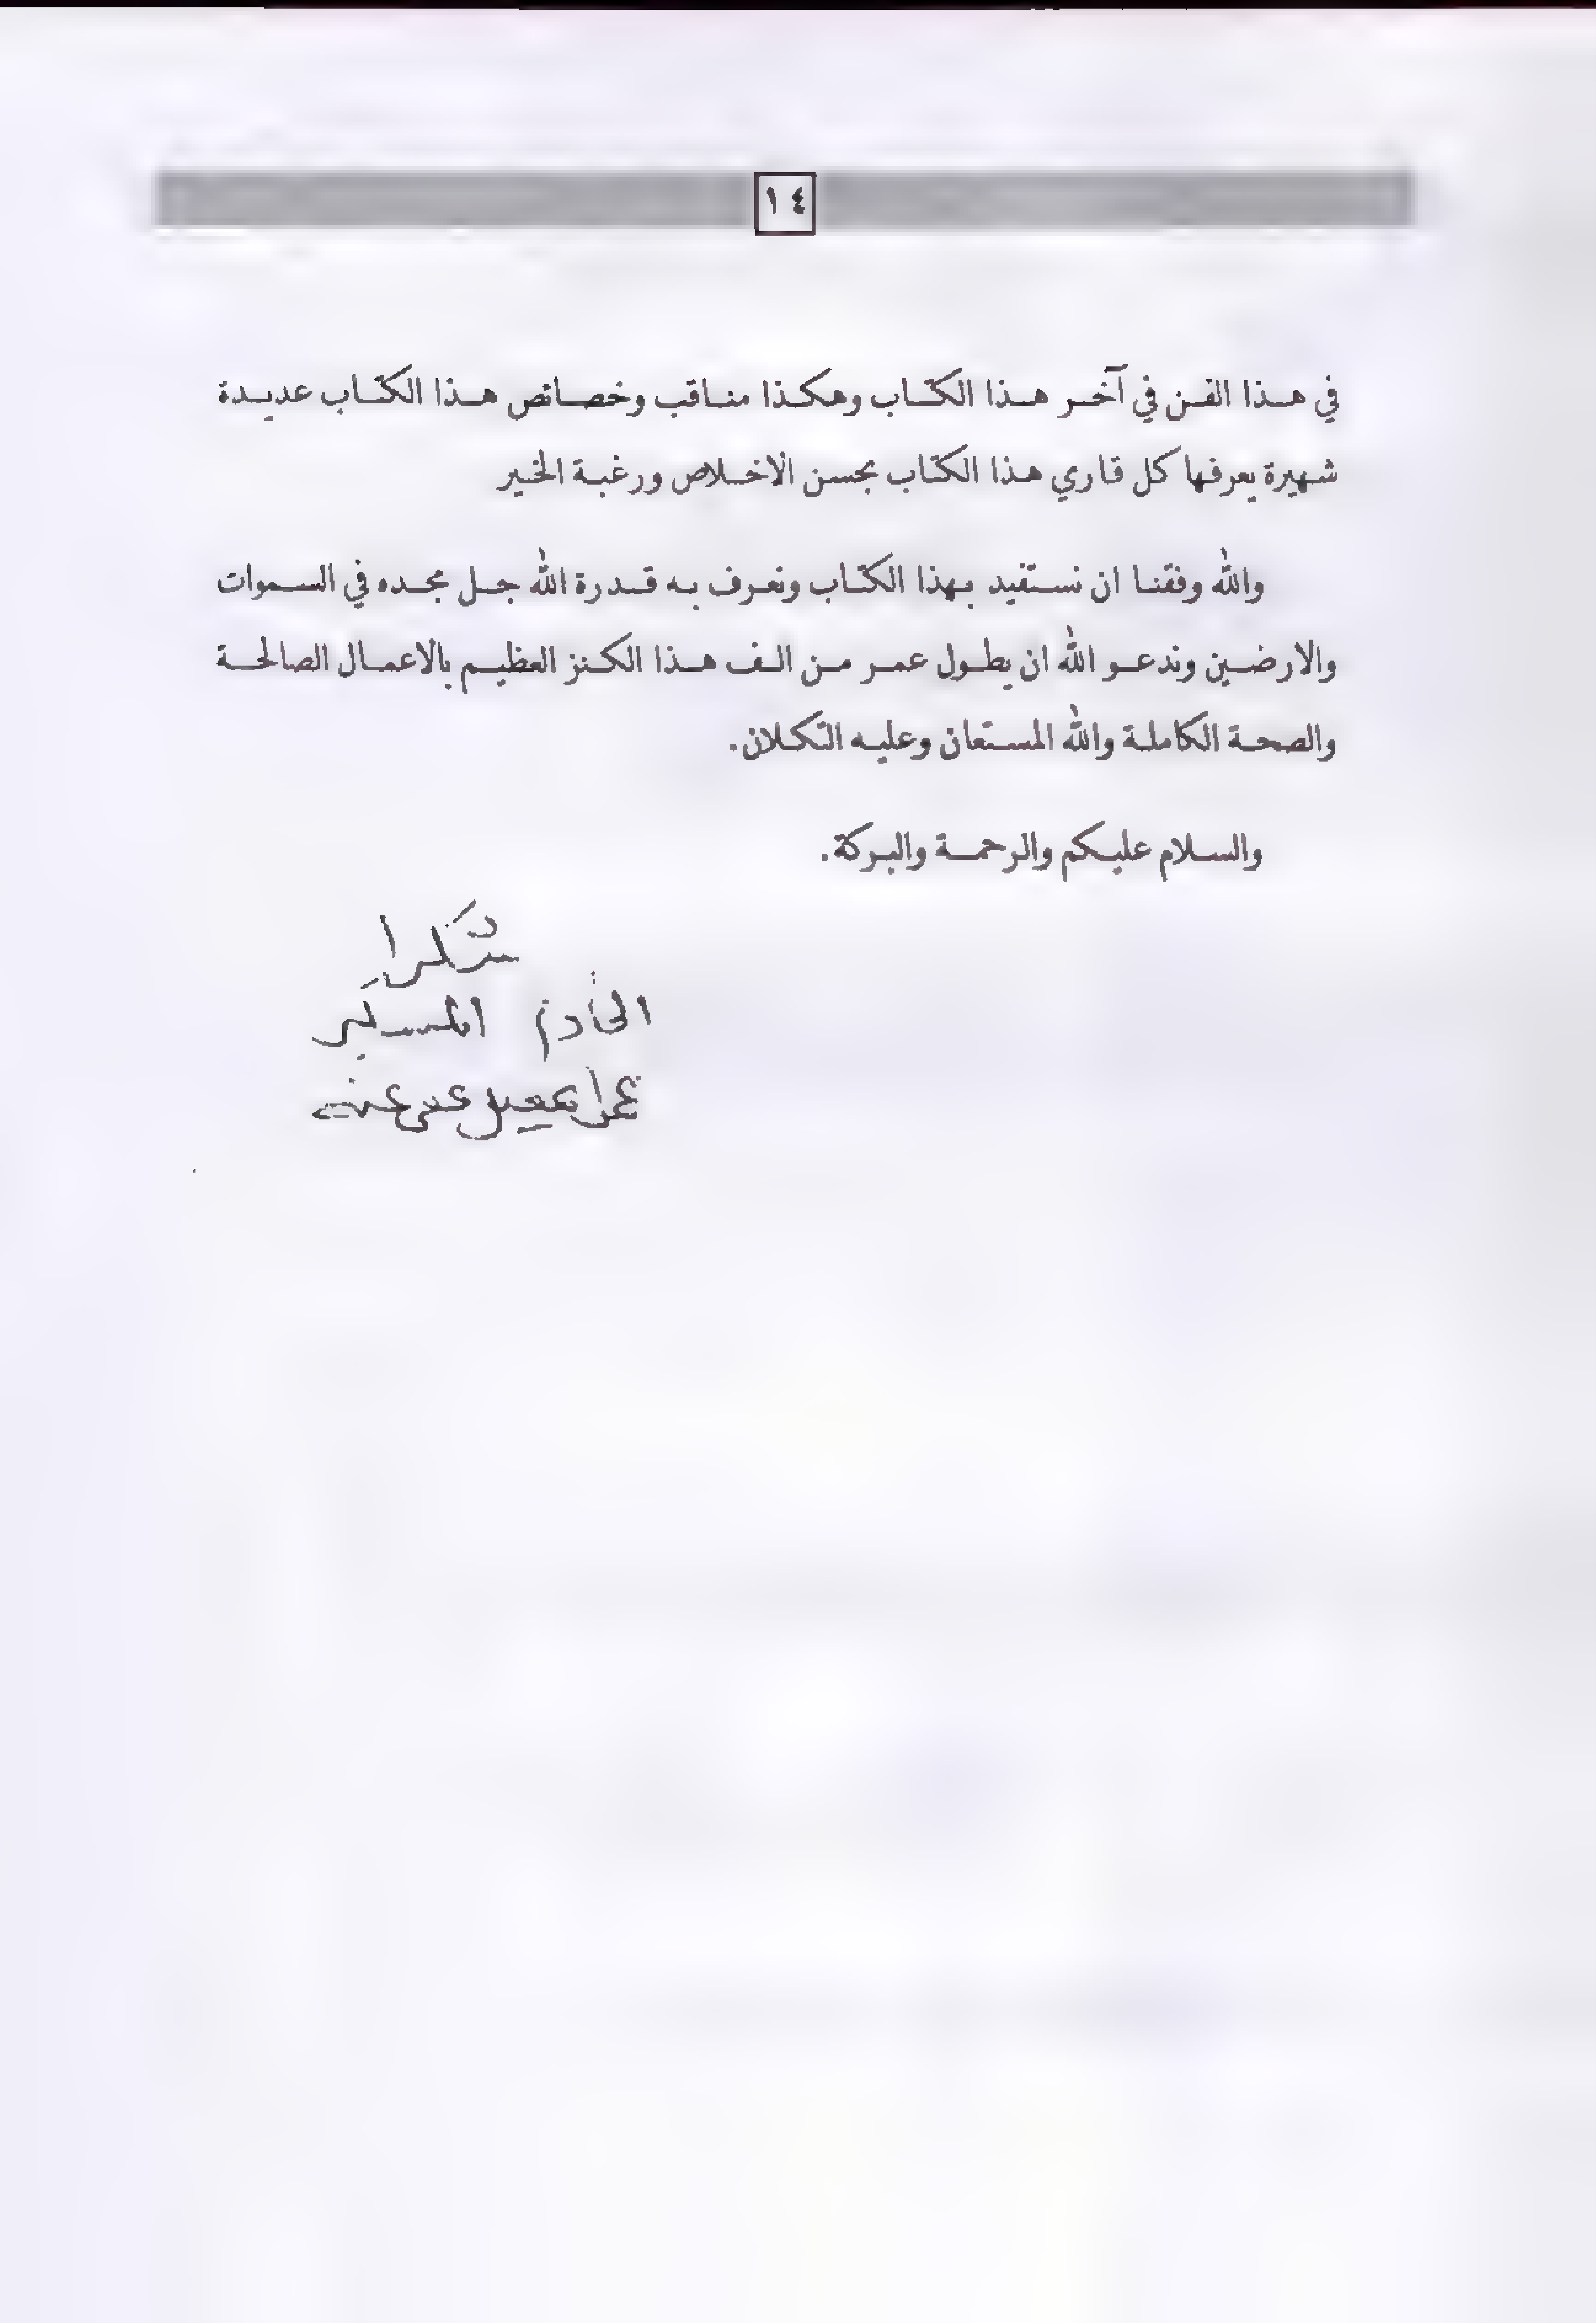 ١٤
في هذا الفن في آخر هذا الكتاب وهكذا مناقب وخصائص هذا الكتاب عديدة
شهيرة يعرفها كل قاري هذا الكتاب بحسن الاخلاص ورغبة الخير
والله وفقنا ان نستفيد بهذا الكتاب ونعرف به قدرة الله جل مجده في السموات
والارضين وندعو الله ان يطول عمر من الف هذا الكنز العظيم بالاعمال الصالحة
والصحة الكاملة والله المستعان وعليه التكلان.
والسلام عليكم والرحمة والبركة.
شكرا
الخادم